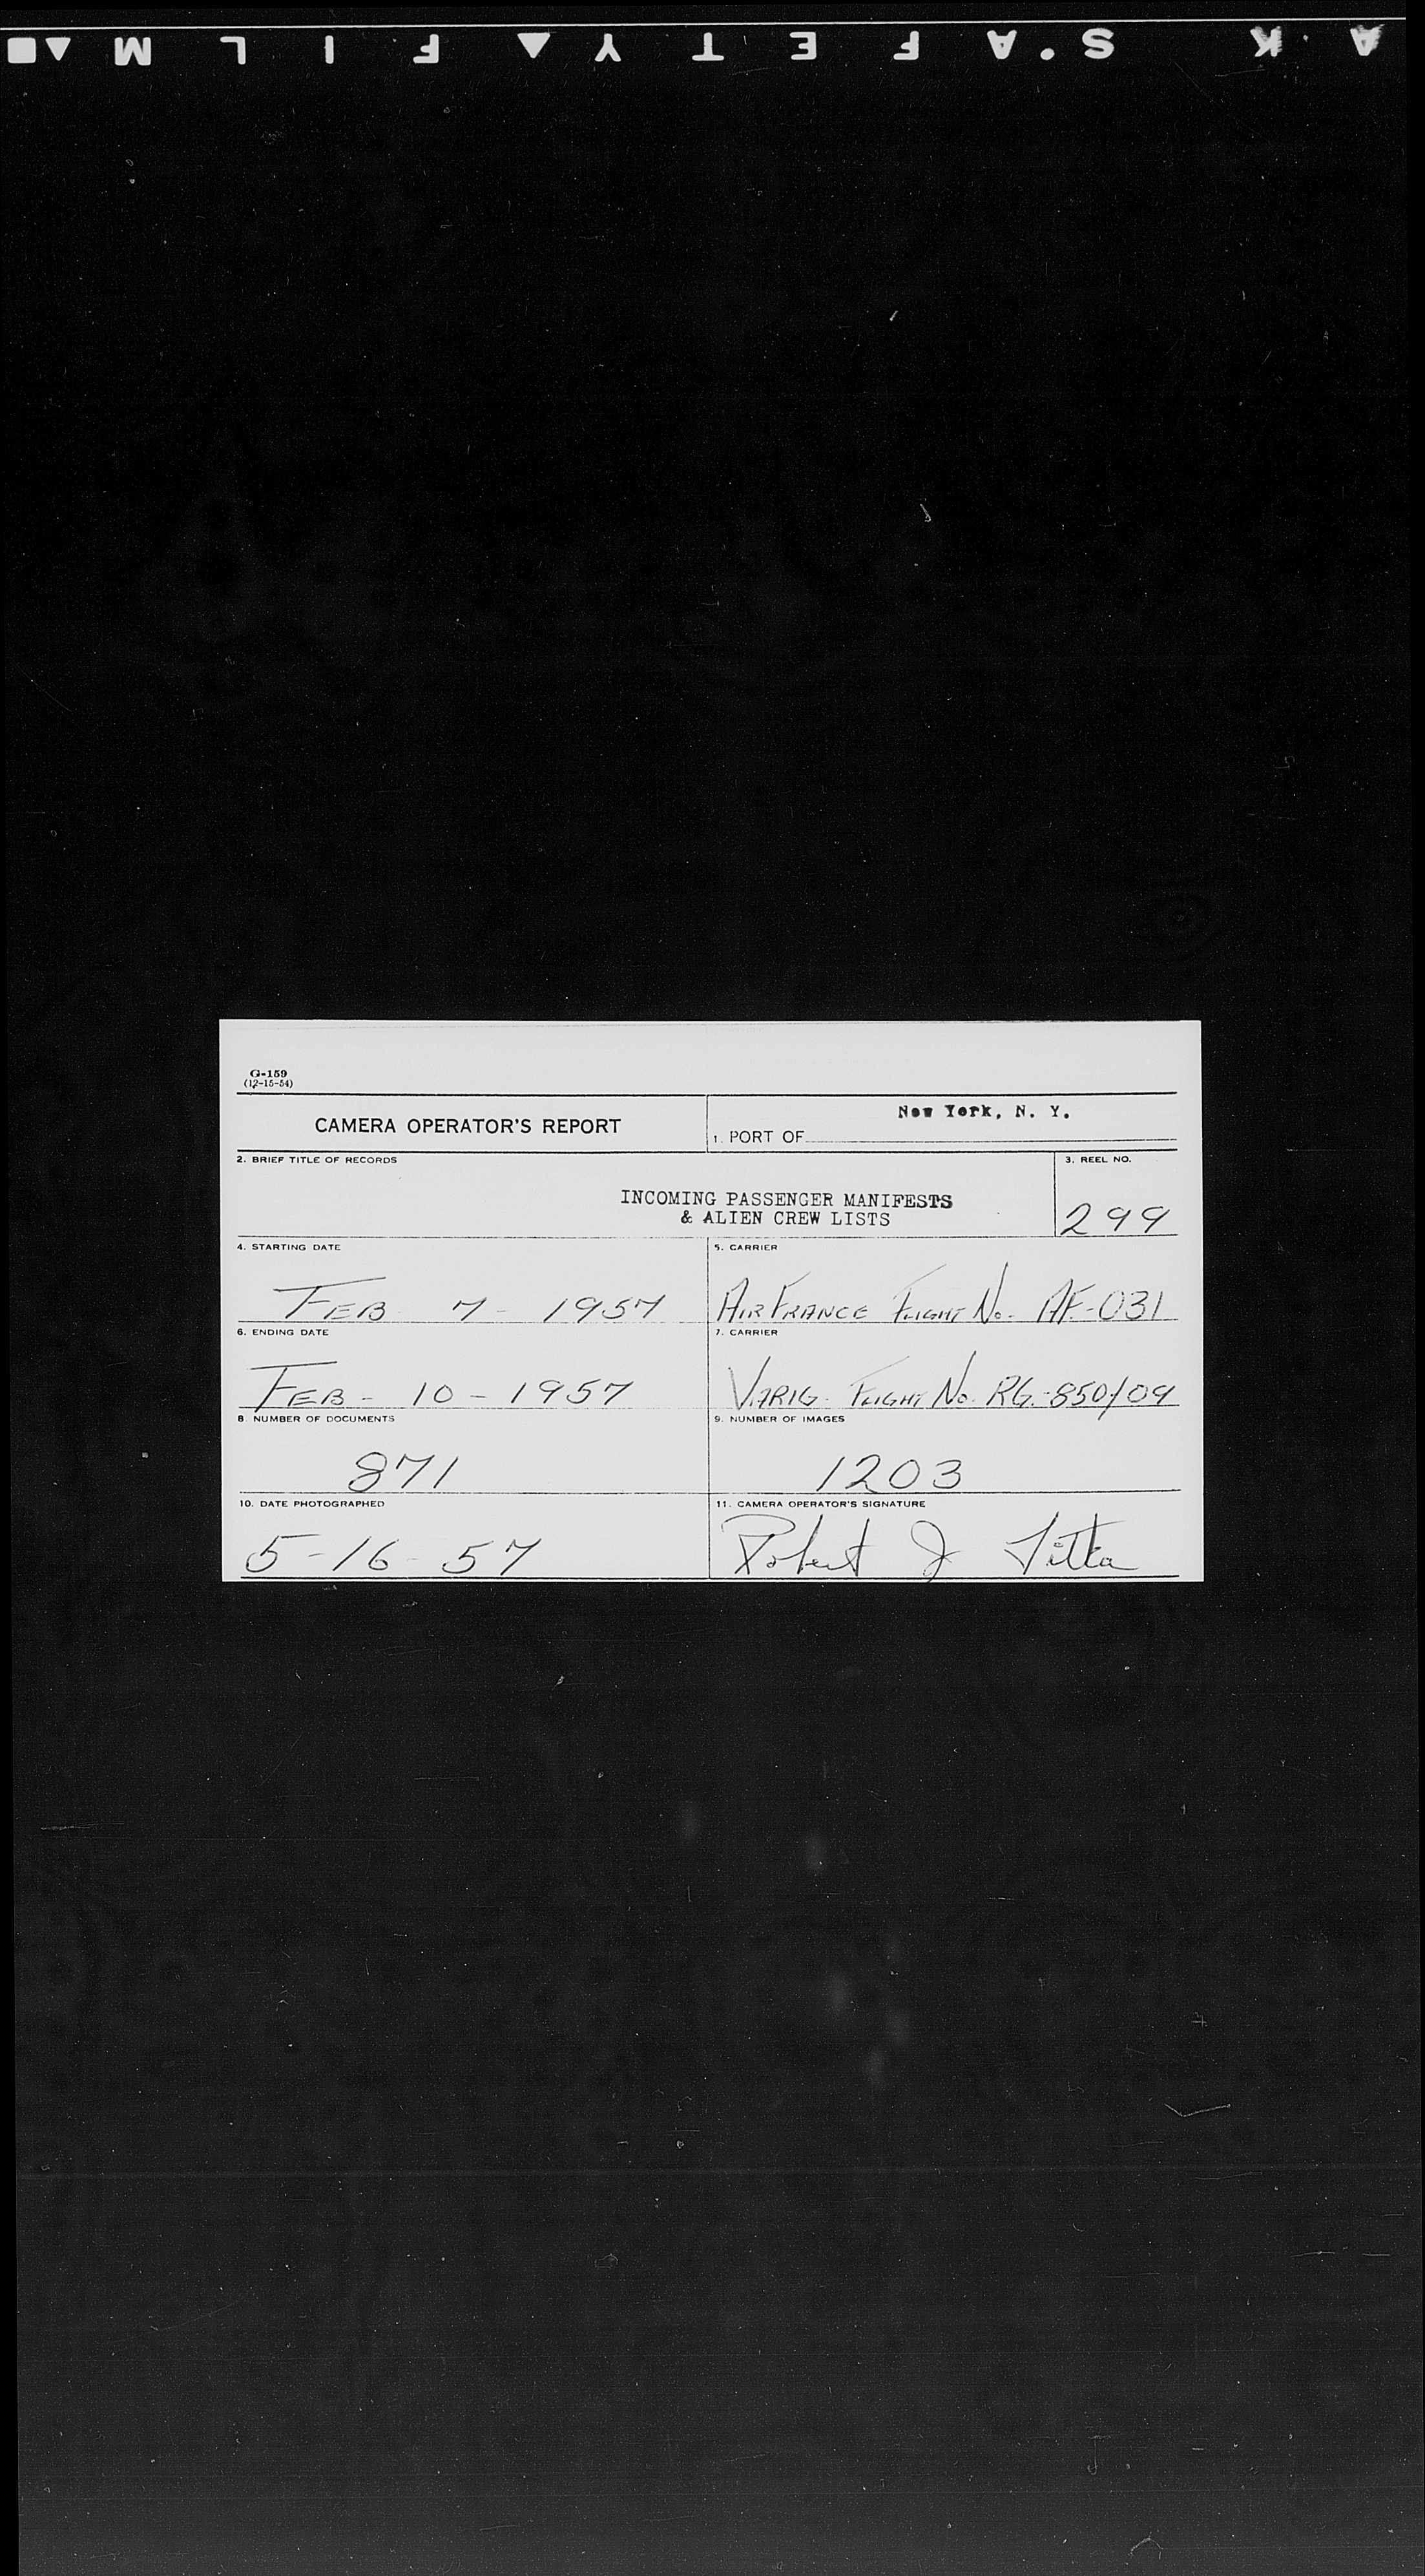 KODAK'S SAFETY FILM
G-159
(12-15-54)
CAMERA OPERATOR'S REPORT
New York, N. Y.
1. PORT OF
2. BRIEF TITLE OF RECORDS
3. REEL NO.
INCOMING PASSENGER MANIFESTS
& ALIEN CREW LISTS
299
4. STARTING DATE
5. CARRIER
FEB 7 - 1957
AIR FRANCE FLIGHT NO. AF-031
6. ENDING DATE
7. CARRIER
FEB - 10 - 1957
VARIG. FLIGHT NO. RG.-850/09
8. NUMBER OF DOCUMENTS
9. NUMBER OF IMAGES
871
1203
10. DATE PHOTOGRAPHED
11. CAMERA OPERATOR'S SIGNATURE
5-16-57
Robert J